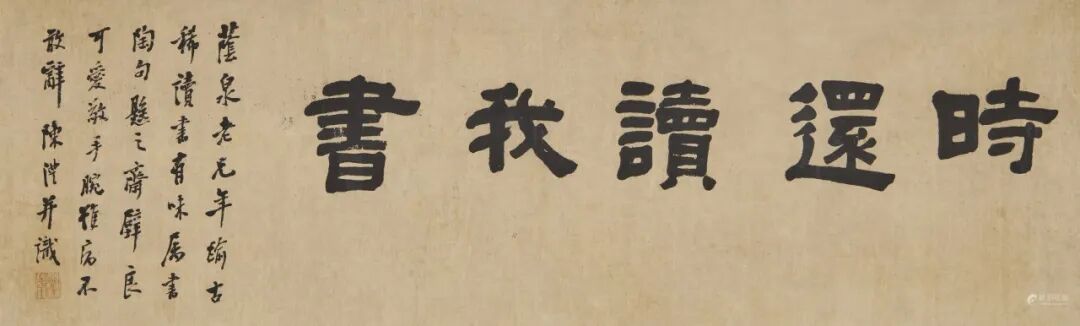 時還讀我書
蔭泉老兄年踰古
稀讀書有味屬書
陶句懸之齋壁良
可愛敬手腕雖病不
敢辭 陳澧并識